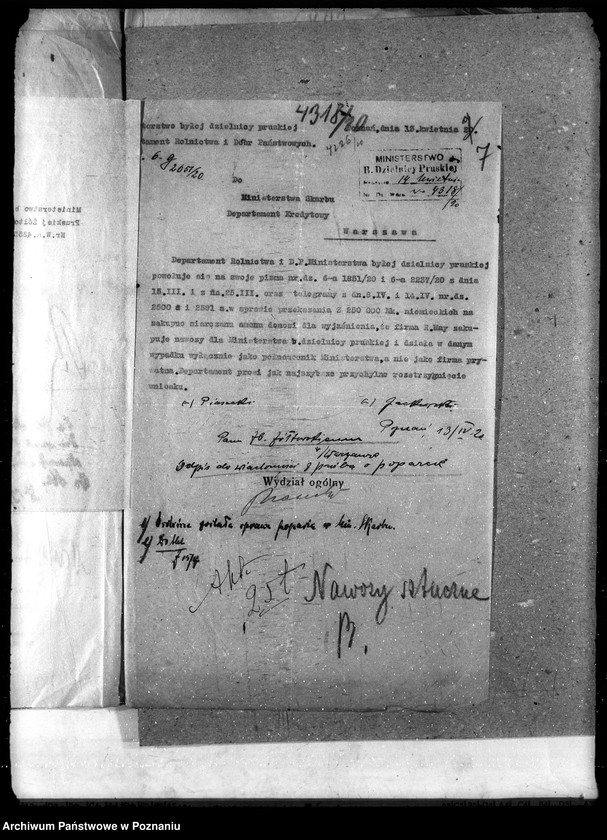 4318/20
terstwo byłej dzielnicy pruskiej
Poznań, dnia 13. kwietnia
tament Rolnictwa i Dóbr Państwowych.
4226/20
7
6-g 2651/20
MINISTERSTWO
B. Dzielnicy Pruskiej
14
4318
/20
Do
Ministerstwa Skarbu
Departament Kredytowy
Warszawa
Departament Rolnictwa i D.P.Ministerstwa byłej dzielnicy pruskiej
powołuje się na swoje pisma nr.dz. 6-a 1851/20 i 6-a 2237/20 z dnia
15.III. i z dn.25.III. oraz telegramy z dn.8.IV. i 14.IV. nr.dz.
2500 a i 2591 a.w sprawie przekazania 3 250 000 Mk. niemieckich na
zakupno siarczanu amonu donosi dla wyjaśnienia,że firma R.May zaku-
puje nawozy dla Ministerstwa b.dzielnicy pruskiej i działa w danym
wypadku wyłącznie jako pełnomocnik Ministerstwa,a nie jako firma pry-
watna.Departament prosi jak najszybsze przychylne rozstrzygnięcie
wniosku.
Poznań, 13/IV 20
Pani Żółtowskiemu
w Warszawie
Odpis do wiadomości z prośbą o poparcie
Wydział ogólny
została sprawa poparta w Min. Skarbu.
Akt.
25t
Nawozy sztuczne
B.
Archiwum Państwowe w Poznaniu